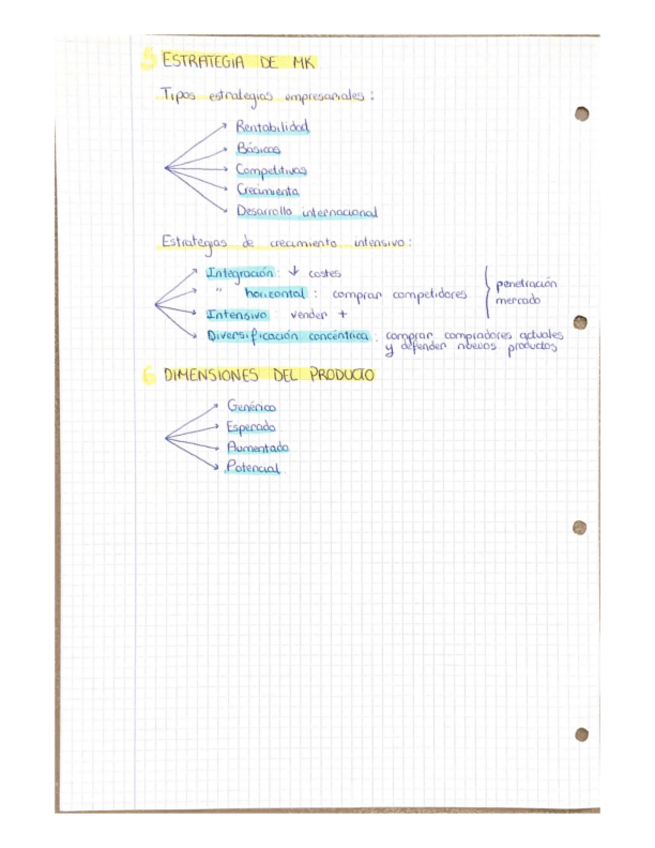 5 ESTRATEGIA DE MK
Tipos estrategias empresariales:
Rentabilidad
Básicas
Competitivas
Crecimiento
Desarrollo internacional
Estrategias de crecimiento intensivo:
Integración: ↓ costes
" horizontal: comprar competidores
penetración
mercado
Intensivo: vender +
Diversificación concéntrica: comprar compradores actuales
y defender nuevos productos
6 DIMENSIONES DEL PRODUCTO
Genérico
Esperado
Aumentado
Potencial